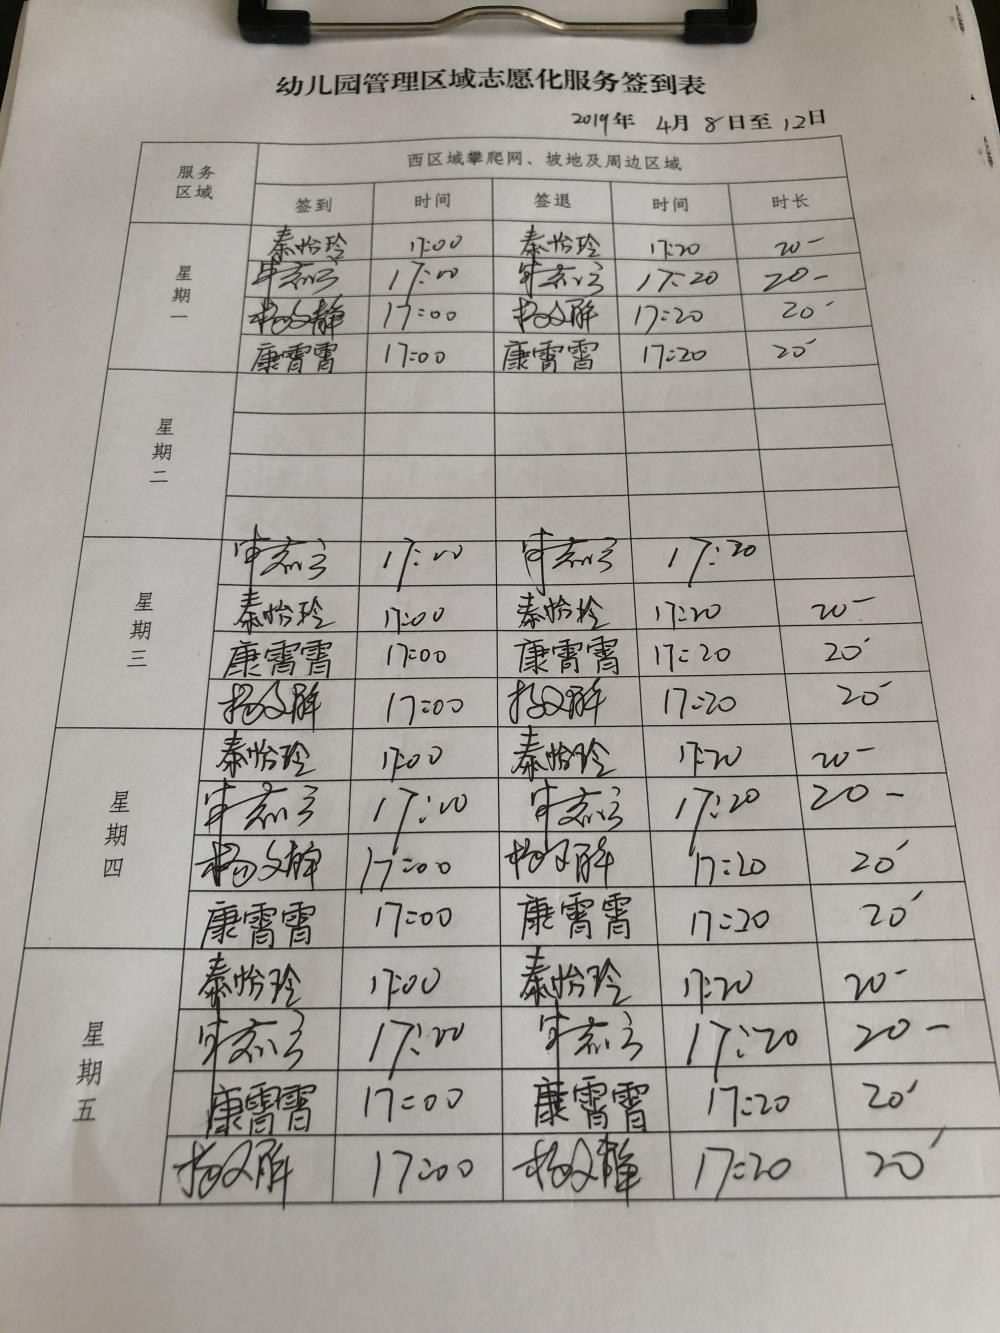 幼儿园管理区域志愿化服务签到表
2019年 4月 8日至 12日
服务区域 西区域攀爬网、坡地及周边区域
签到 时间 签退 时间 时长
星期一
秦怡玲 17:00 秦怡玲 17:20 20-
17:00 17:20 20-
杨文静 17:00 杨文静 17:20 20'
康霄霄 17:00 康霄霄 17:20 20'
星期二
星期三
17:00 17:20
秦怡玲 17:00 秦怡玲 17:20 20-
康霄霄 17:00 康霄霄 17:20 20'
杨文静 17:00 杨文静 17:20 20'
星期四
秦怡玲 17:00 秦怡玲 17:20 20-
17:00 17:20 20-
杨文静 17:00 杨文静 17:20 20'
康霄霄 17:00 康霄霄 17:20 20'
星期五
秦怡玲 17:00 秦怡玲 17:20 20-
17:00 17:20 20-
康霄霄 17:00 康霄霄 17:20 20'
杨文静 17:00 杨文静 17:20 20'